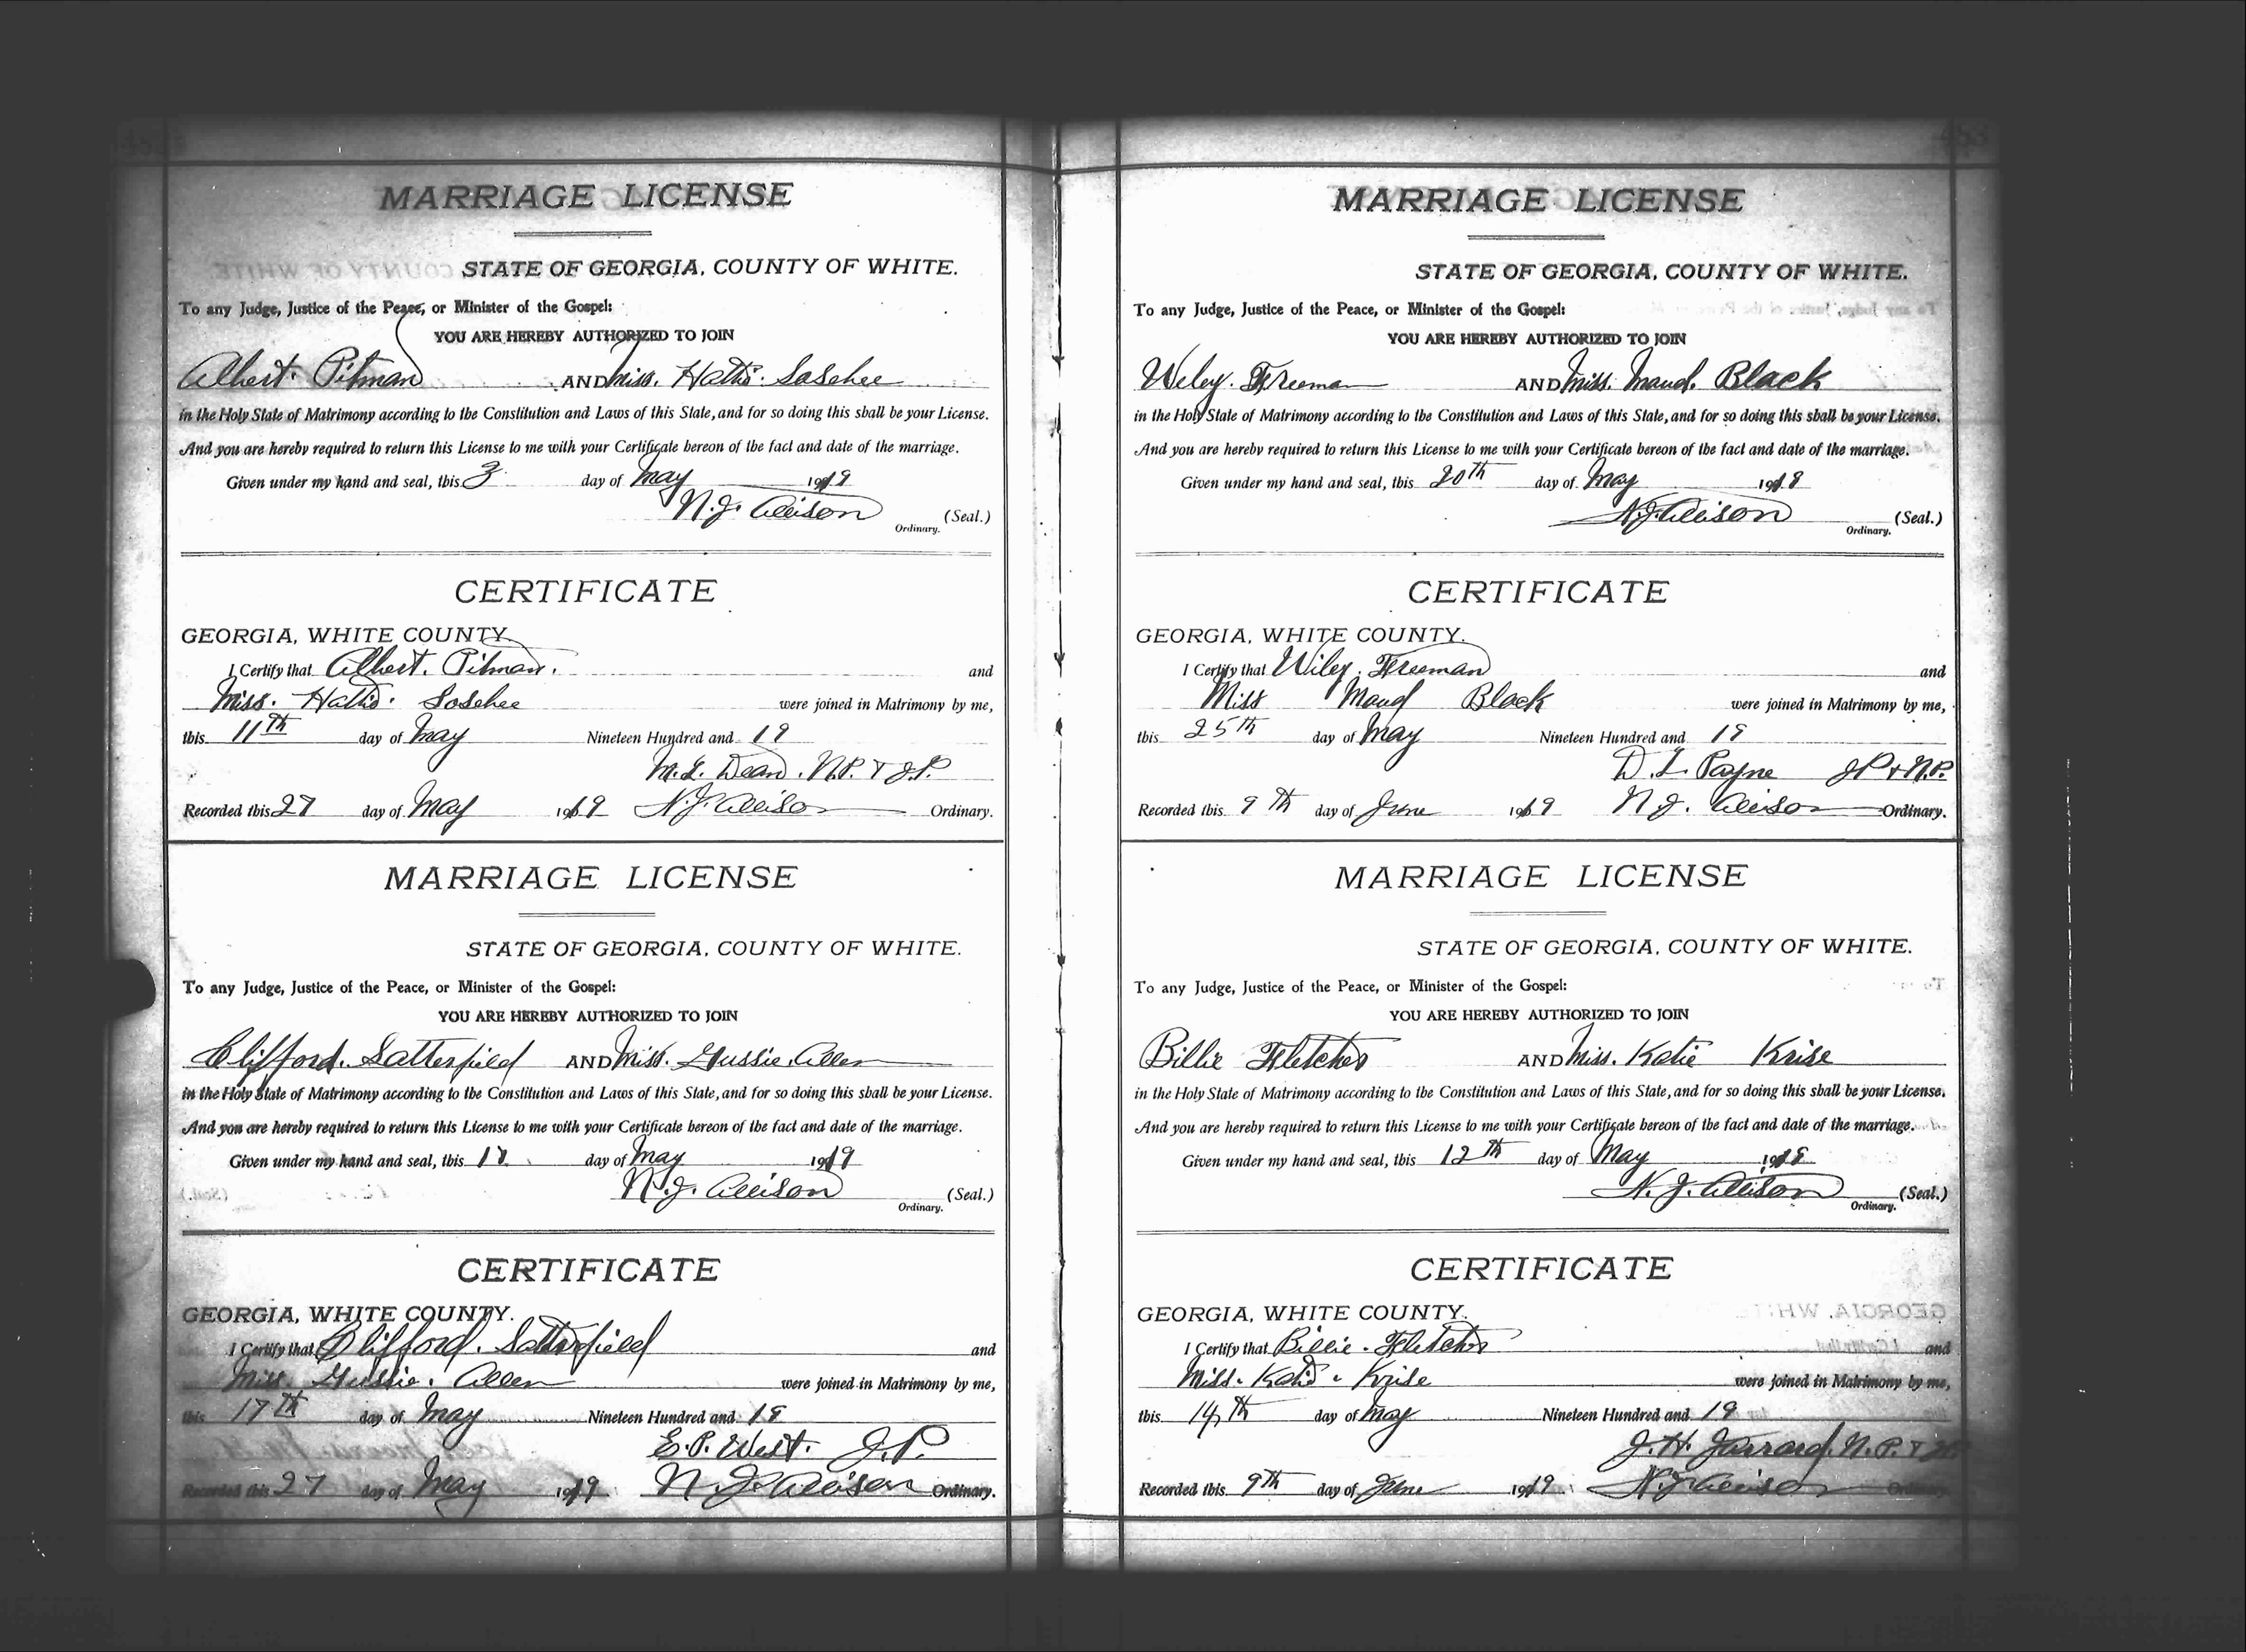 MARRIAGE LICENSE
STATE OF GEORGIA, COUNTY OF WHITE.
To any Judge, Justice of the Peace, or Minister of the Gospel:
YOU ARE HEREBY AUTHORIZED TO JOIN
Albert Pitman AND Miss. Hattie Sosebee
in the Holy State of Matrimony according to the Constitution and Laws of this State, and for so doing this shall be your License.
And you are hereby required to return this License to me with your Certificate hereon of the fact and date of the marriage.
Given under my hand and seal, this 3 day of May 1919
N. J. Allison (Seal.)
Ordinary.
CERTIFICATE
GEORGIA, WHITE COUNTY.
I Certify that Albert. Pitman. and
Miss. Hattie. Sosebee were joined in Matrimony by me,
this 11th day of May Nineteen Hundred and 19
M. L. Dean. N.P. & J.P.
Recorded this 27 day of May 1919 N. J. Allison Ordinary.
MARRIAGE LICENSE
STATE OF GEORGIA, COUNTY OF WHITE.
To any Judge, Justice of the Peace, or Minister of the Gospel:
YOU ARE HEREBY AUTHORIZED TO JOIN
Clifford. Satterfield AND Miss. Gussie. Allen
in the Holy State of Matrimony according to the Constitution and Laws of this State, and for so doing this shall be your License.
And you are hereby required to return this License to me with your Certificate hereon of the fact and date of the marriage.
Given under my hand and seal, this day of May 1919
N. J. Allison (Seal.)
Ordinary.
CERTIFICATE
GEORGIA, WHITE COUNTY.
I Certify that Clifford. Satterfield and
Miss. Gussie. Allen were joined in Matrimony by me,
this 17th day of May Nineteen Hundred and 19
E. P. West. J.P.
Recorded this 27 day of May 1919 N. J. Allison Ordinary.
MARRIAGE LICENSE
STATE OF GEORGIA, COUNTY OF WHITE.
To any Judge, Justice of the Peace, or Minister of the Gospel:
YOU ARE HEREBY AUTHORIZED TO JOIN
Wiley. Freeman AND Miss. Maud. Black
in the Holy State of Matrimony according to the Constitution and Laws of this State, and for so doing this shall be your License.
And you are hereby required to return this License to me with your Certificate hereon of the fact and date of the marriage.
Given under my hand and seal, this 20th day of May 1919
N. J. Allison (Seal.)
Ordinary.
CERTIFICATE
GEORGIA, WHITE COUNTY.
I Certify that Wiley. Freeman and
Miss Maud Black were joined in Matrimony by me,
this 25th day of May Nineteen Hundred and 19
D. L. Payne JP & N.P.
Recorded this 9th day of June 1919 N. J. Allison Ordinary.
MARRIAGE LICENSE
STATE OF GEORGIA, COUNTY OF WHITE.
To any Judge, Justice of the Peace, or Minister of the Gospel:
YOU ARE HEREBY AUTHORIZED TO JOIN
Billie Fletcher AND Miss. Katie Krise
in the Holy State of Matrimony according to the Constitution and Laws of this State, and for so doing this shall be your License.
And you are hereby required to return this License to me with your Certificate hereon of the fact and date of the marriage.
Given under my hand and seal, this 12th day of May 1919
N. J. Allison (Seal.)
Ordinary.
CERTIFICATE
GEORGIA, WHITE COUNTY.
I Certify that Billie. Fletcher and
Miss. Katie. Krise were joined in Matrimony by me,
this 14th day of May Nineteen Hundred and 19
J. H. Jarrard, N.P. &
Recorded this 9th day of June 1919 N. J. Allison Ordinary.